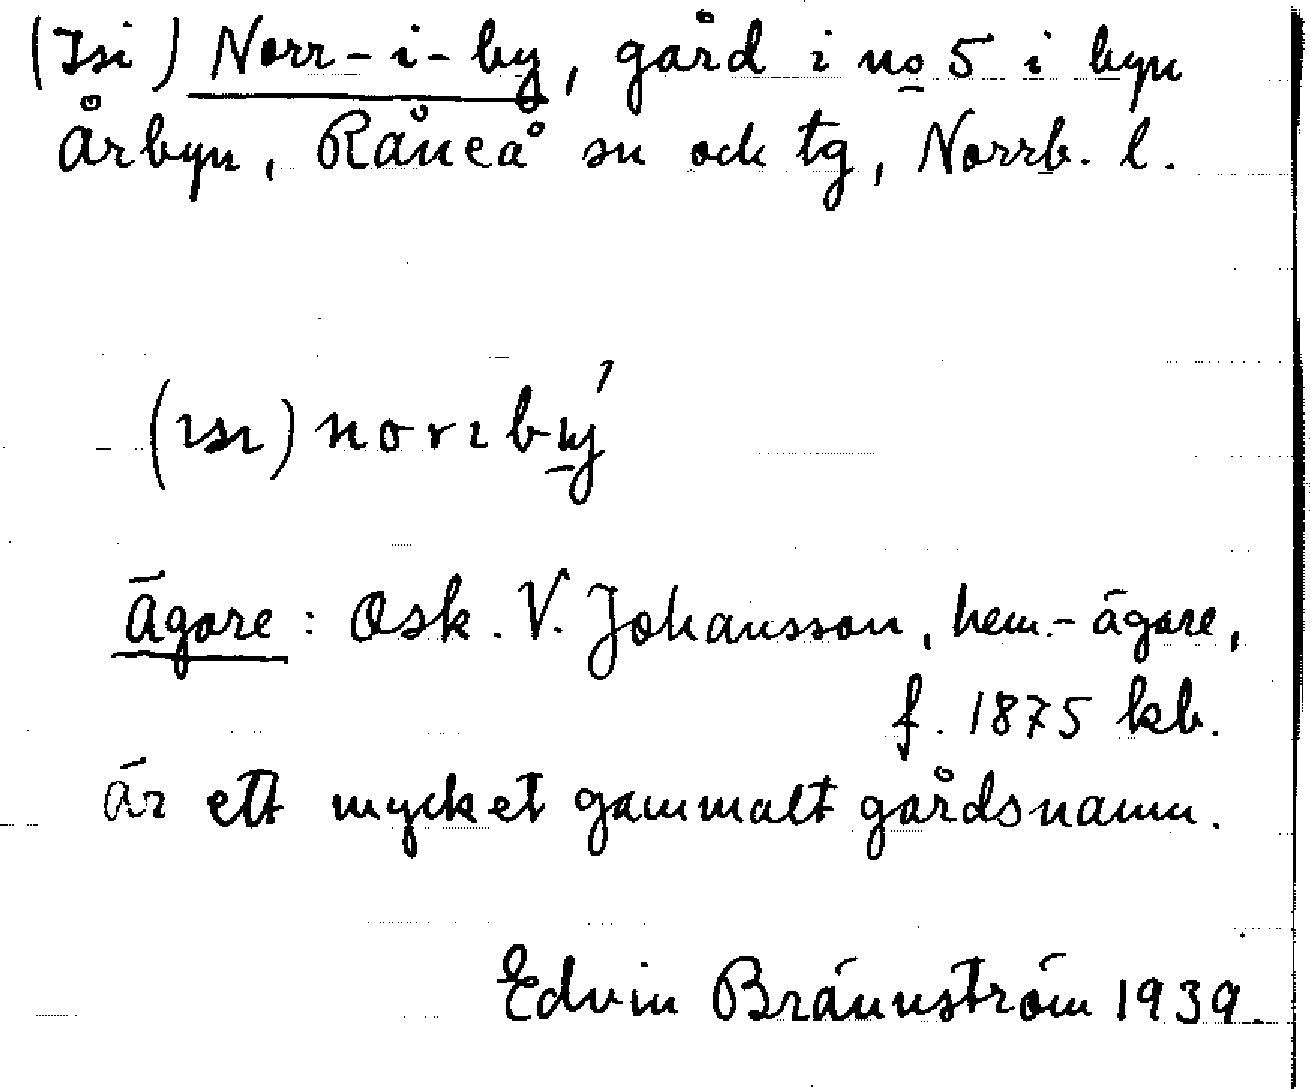 (Isi) Norr-i-by, gård i no 5 i byn
Årbyn, Råneå sn ock tg, Norrb. l.
(ısı) norıbý
Ägare: Osk. V. Johansson, hem.-ägare,
f. 1875 kb.
Är ett mycket gammalt gårdsnamn.
Edvin Brännström 1939.